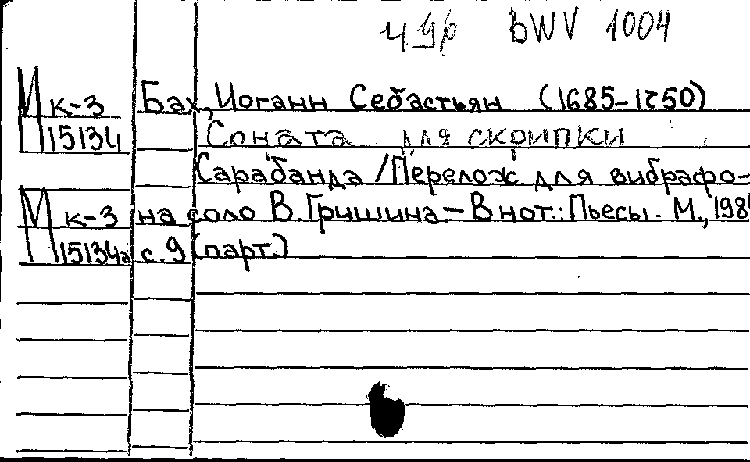 ч9б BWV 1004
М к-3 Бах, Иоганн Себастьян (1685-1750)
15134 Соната для скрипки
Сарабанда /Перелож для вибрафо-
М к-3 на соло В. Гришина - В нот.: Пьесы. М., 198
15134а с. 9 (парт.)